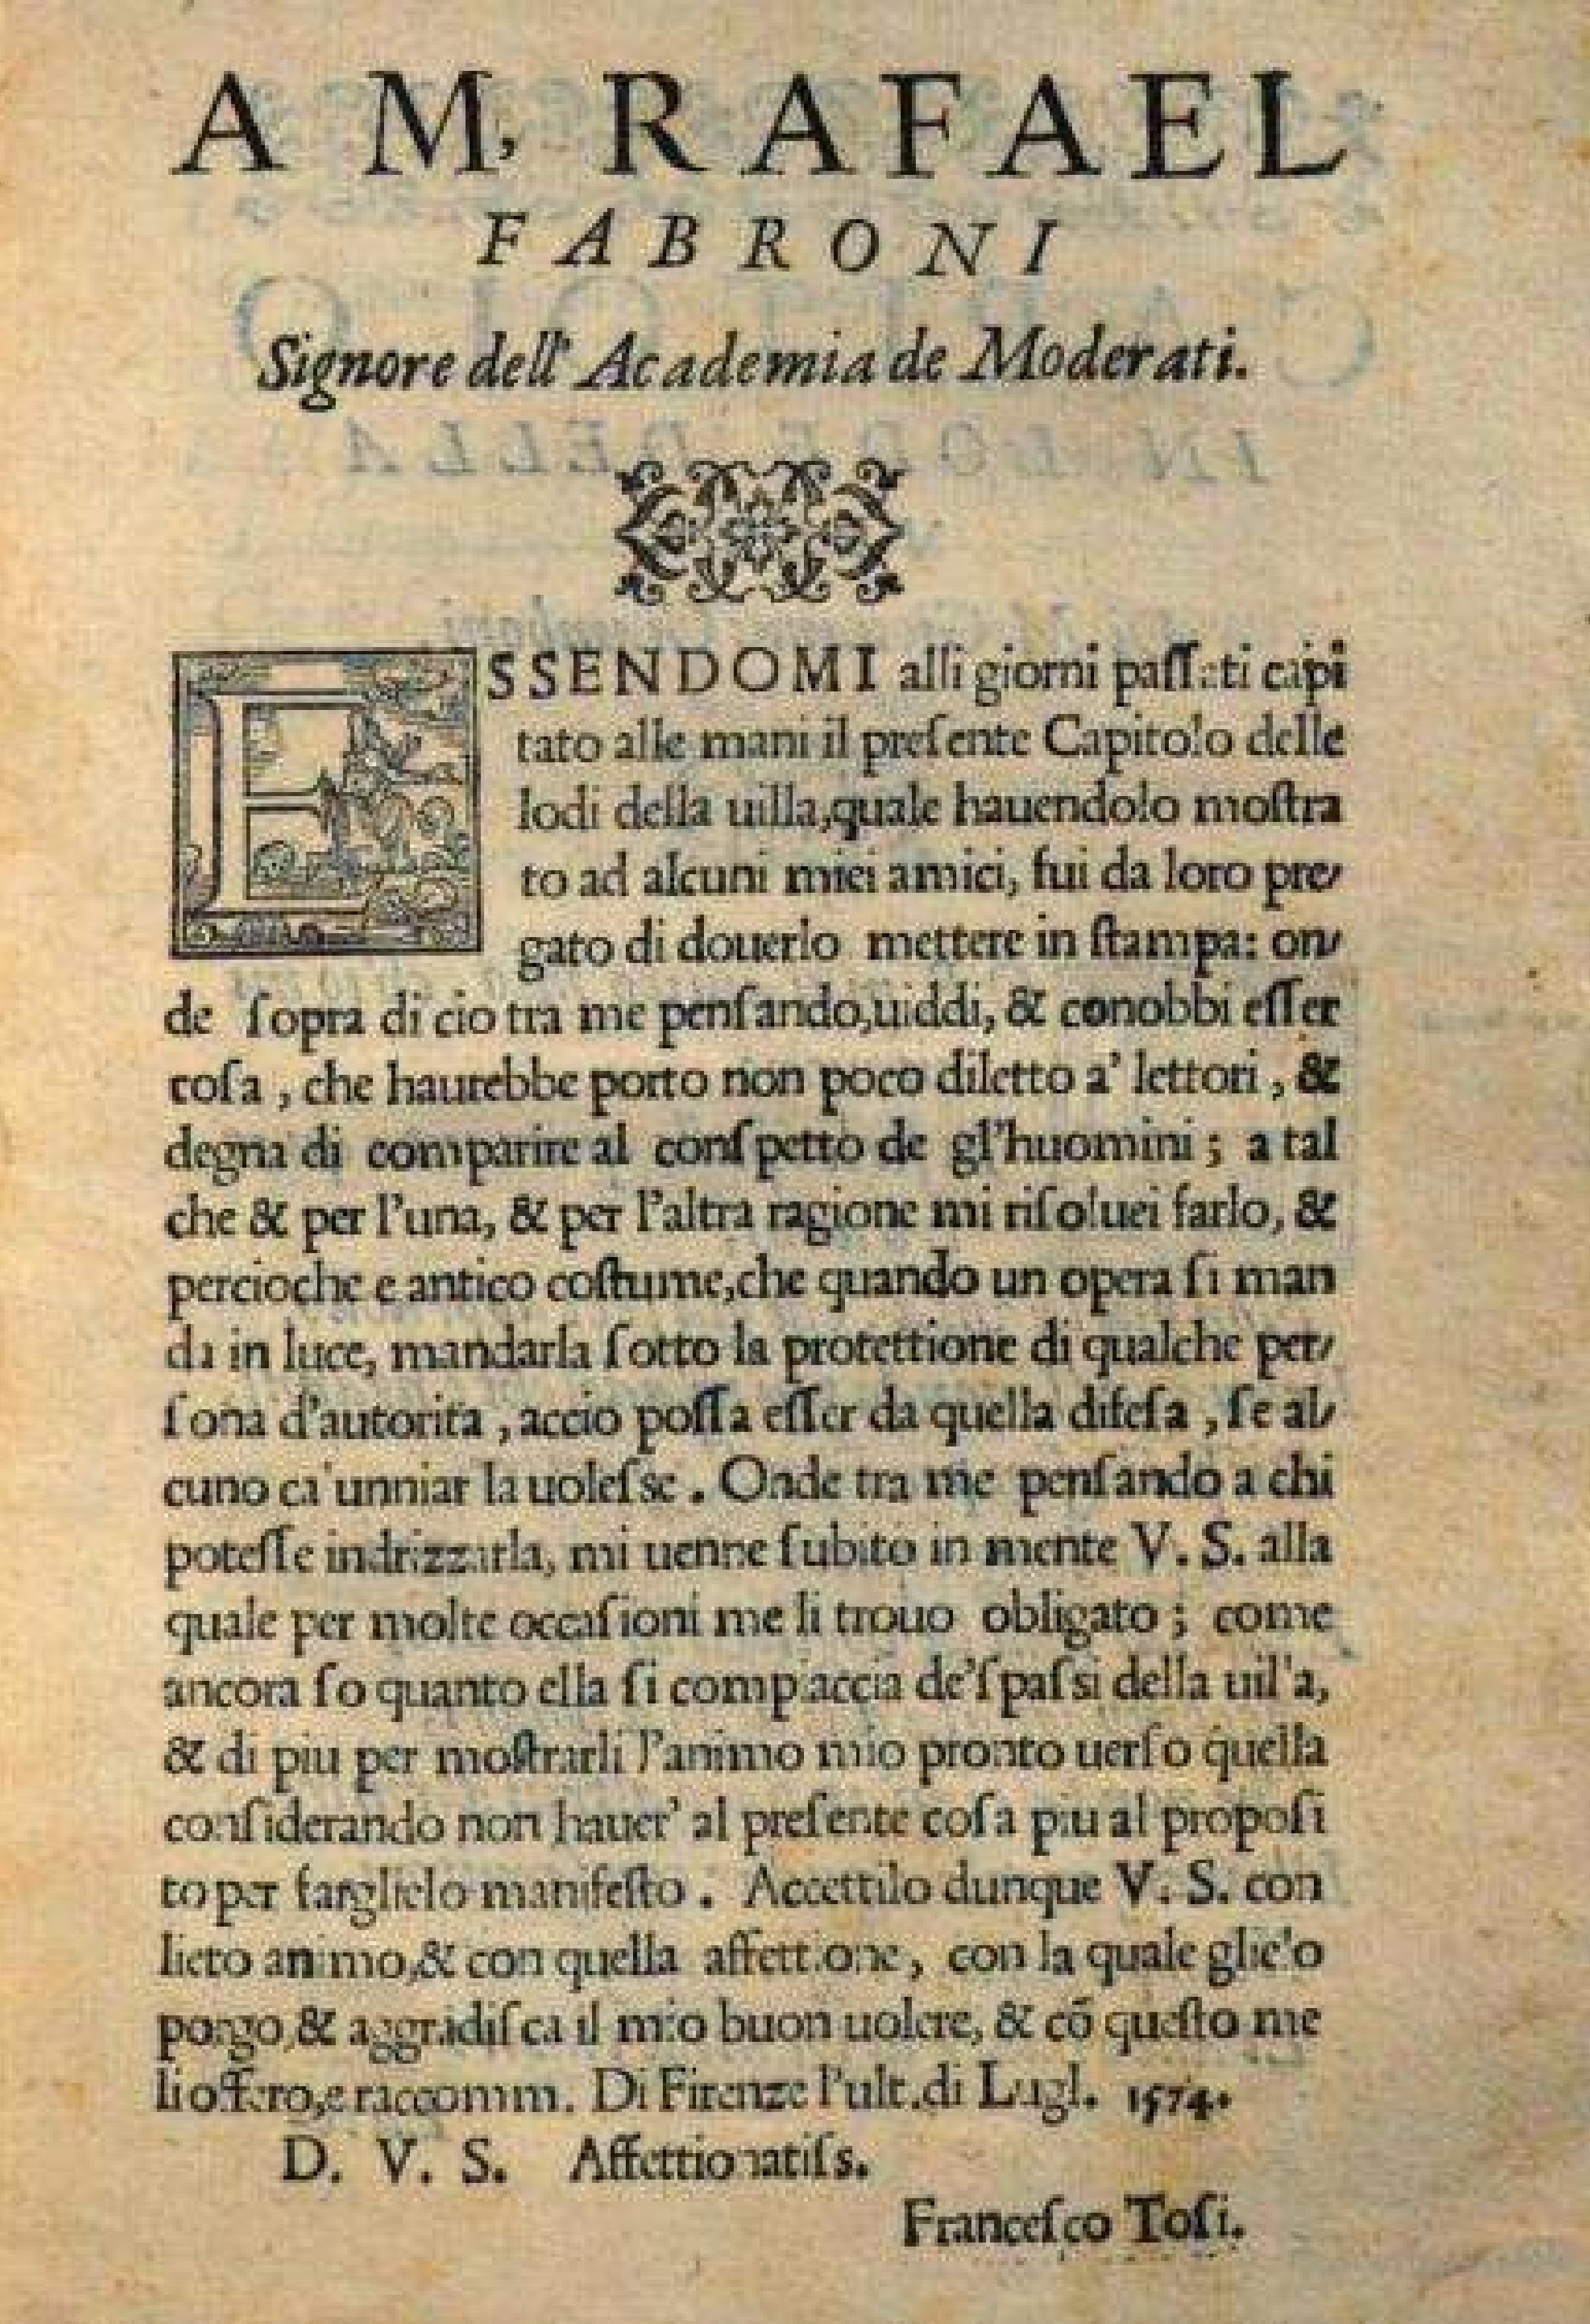 A M, RAFAEL
FABRONI
Signore dell' Academia de Moderati.
ESSENDOMI alli giorni paſſati capi
tato alle mani il preſente Capitolo delle
lodi della uilla,quale hauendolo moſtra
to ad alcuni miei amici, fui da loro pre-
gato di douerlo mettere in ſtampa: on-
de ſopra di cio tra me penſando,uiddi, & conobbi eſſer
coſa , che haurebbe porto non poco diletto a' lettori , &
degna di comparire al conſpetto de gl'huomini ; a tal
che & per l'una, & per l'altra ragione mi riſoluei farlo, &
percioche e antico coſtume,che quando un opera ſi man
da in luce, mandarla ſotto la protettione di qualche per-
ſona d'autorita , accio poſſa eſſer da quella difeſa , ſe al-
cuno calunniar la uoleſse . Onde tra me penſando a chi
poteſſe indrizzarla, mi uenne ſubito in mente V. S. alla
quale per molte occaſioni me li trouo obligato ; come
ancora ſo quanto ella ſi compiaccia de'ſpaſsi della uilla,
& di piu per moſtrarli l'animo mio pronto uerſo quella
conſiderando non hauer' al preſente coſa piu al propoſi
to per farglielo manifeſto . Accettilo dunque V. S. con
lieto animo,& con quella affettione, con la quale glielo
porgo,& aggradiſca il mio buon uolere, & cõ queſto me
li offero,e raccomm. Di Firenze l'ult.di Lugl. 1574.
D. V. S. Affettionatiſs.
Franceſco Toſi.